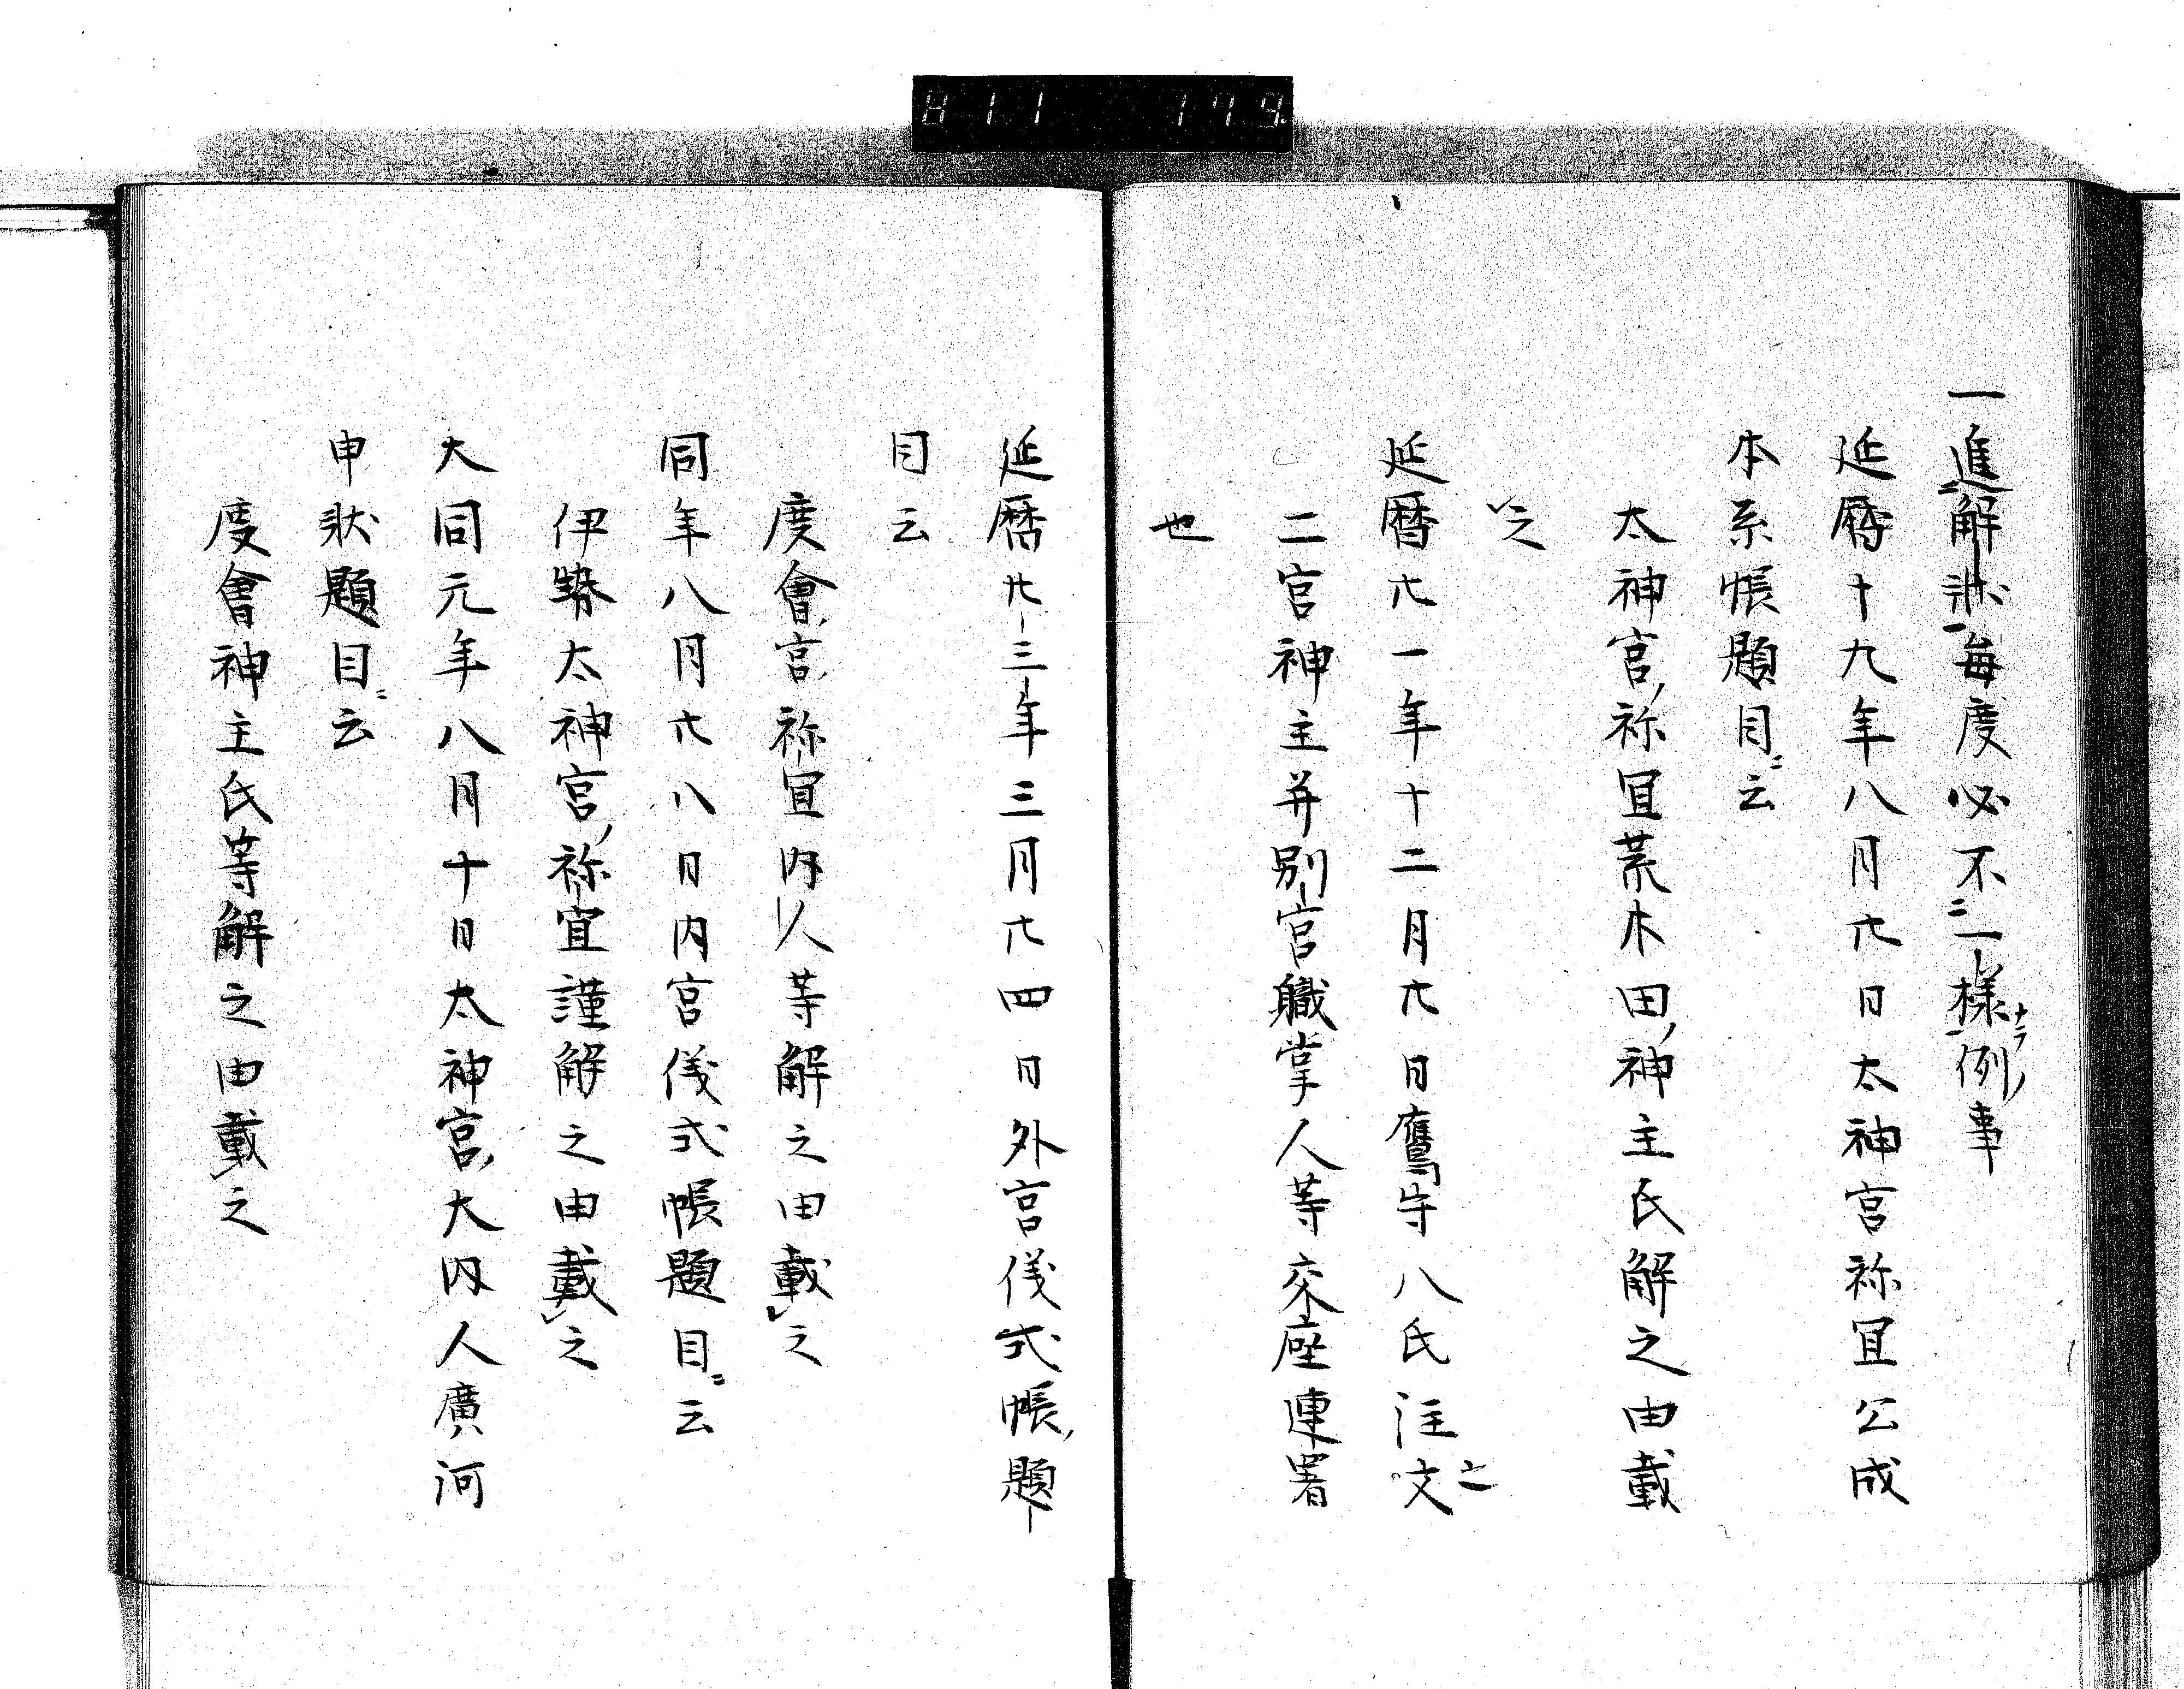 811 179
一進解狀每度必不一樣例事
延曆十九年八月廿日太神宮祢冝公成
本系帳題目云
太神宮祢冝荒木田神主氏解之由載
之
延曆廿一年十二月廿日鷹守八氏注文
二宮神主并別宮職掌人等交座連署
也
延曆廿三年三月廿四日外宮儀式帳題
目云
度會宮祢冝內人等解之由載之
同年八月廿八日內宮儀式帳題目云
伊勢太神宮祢宜謹解之由載之
大同元年八月十日太神宮大內人廣河
申狀題目云
度會神主氏等解之由載之